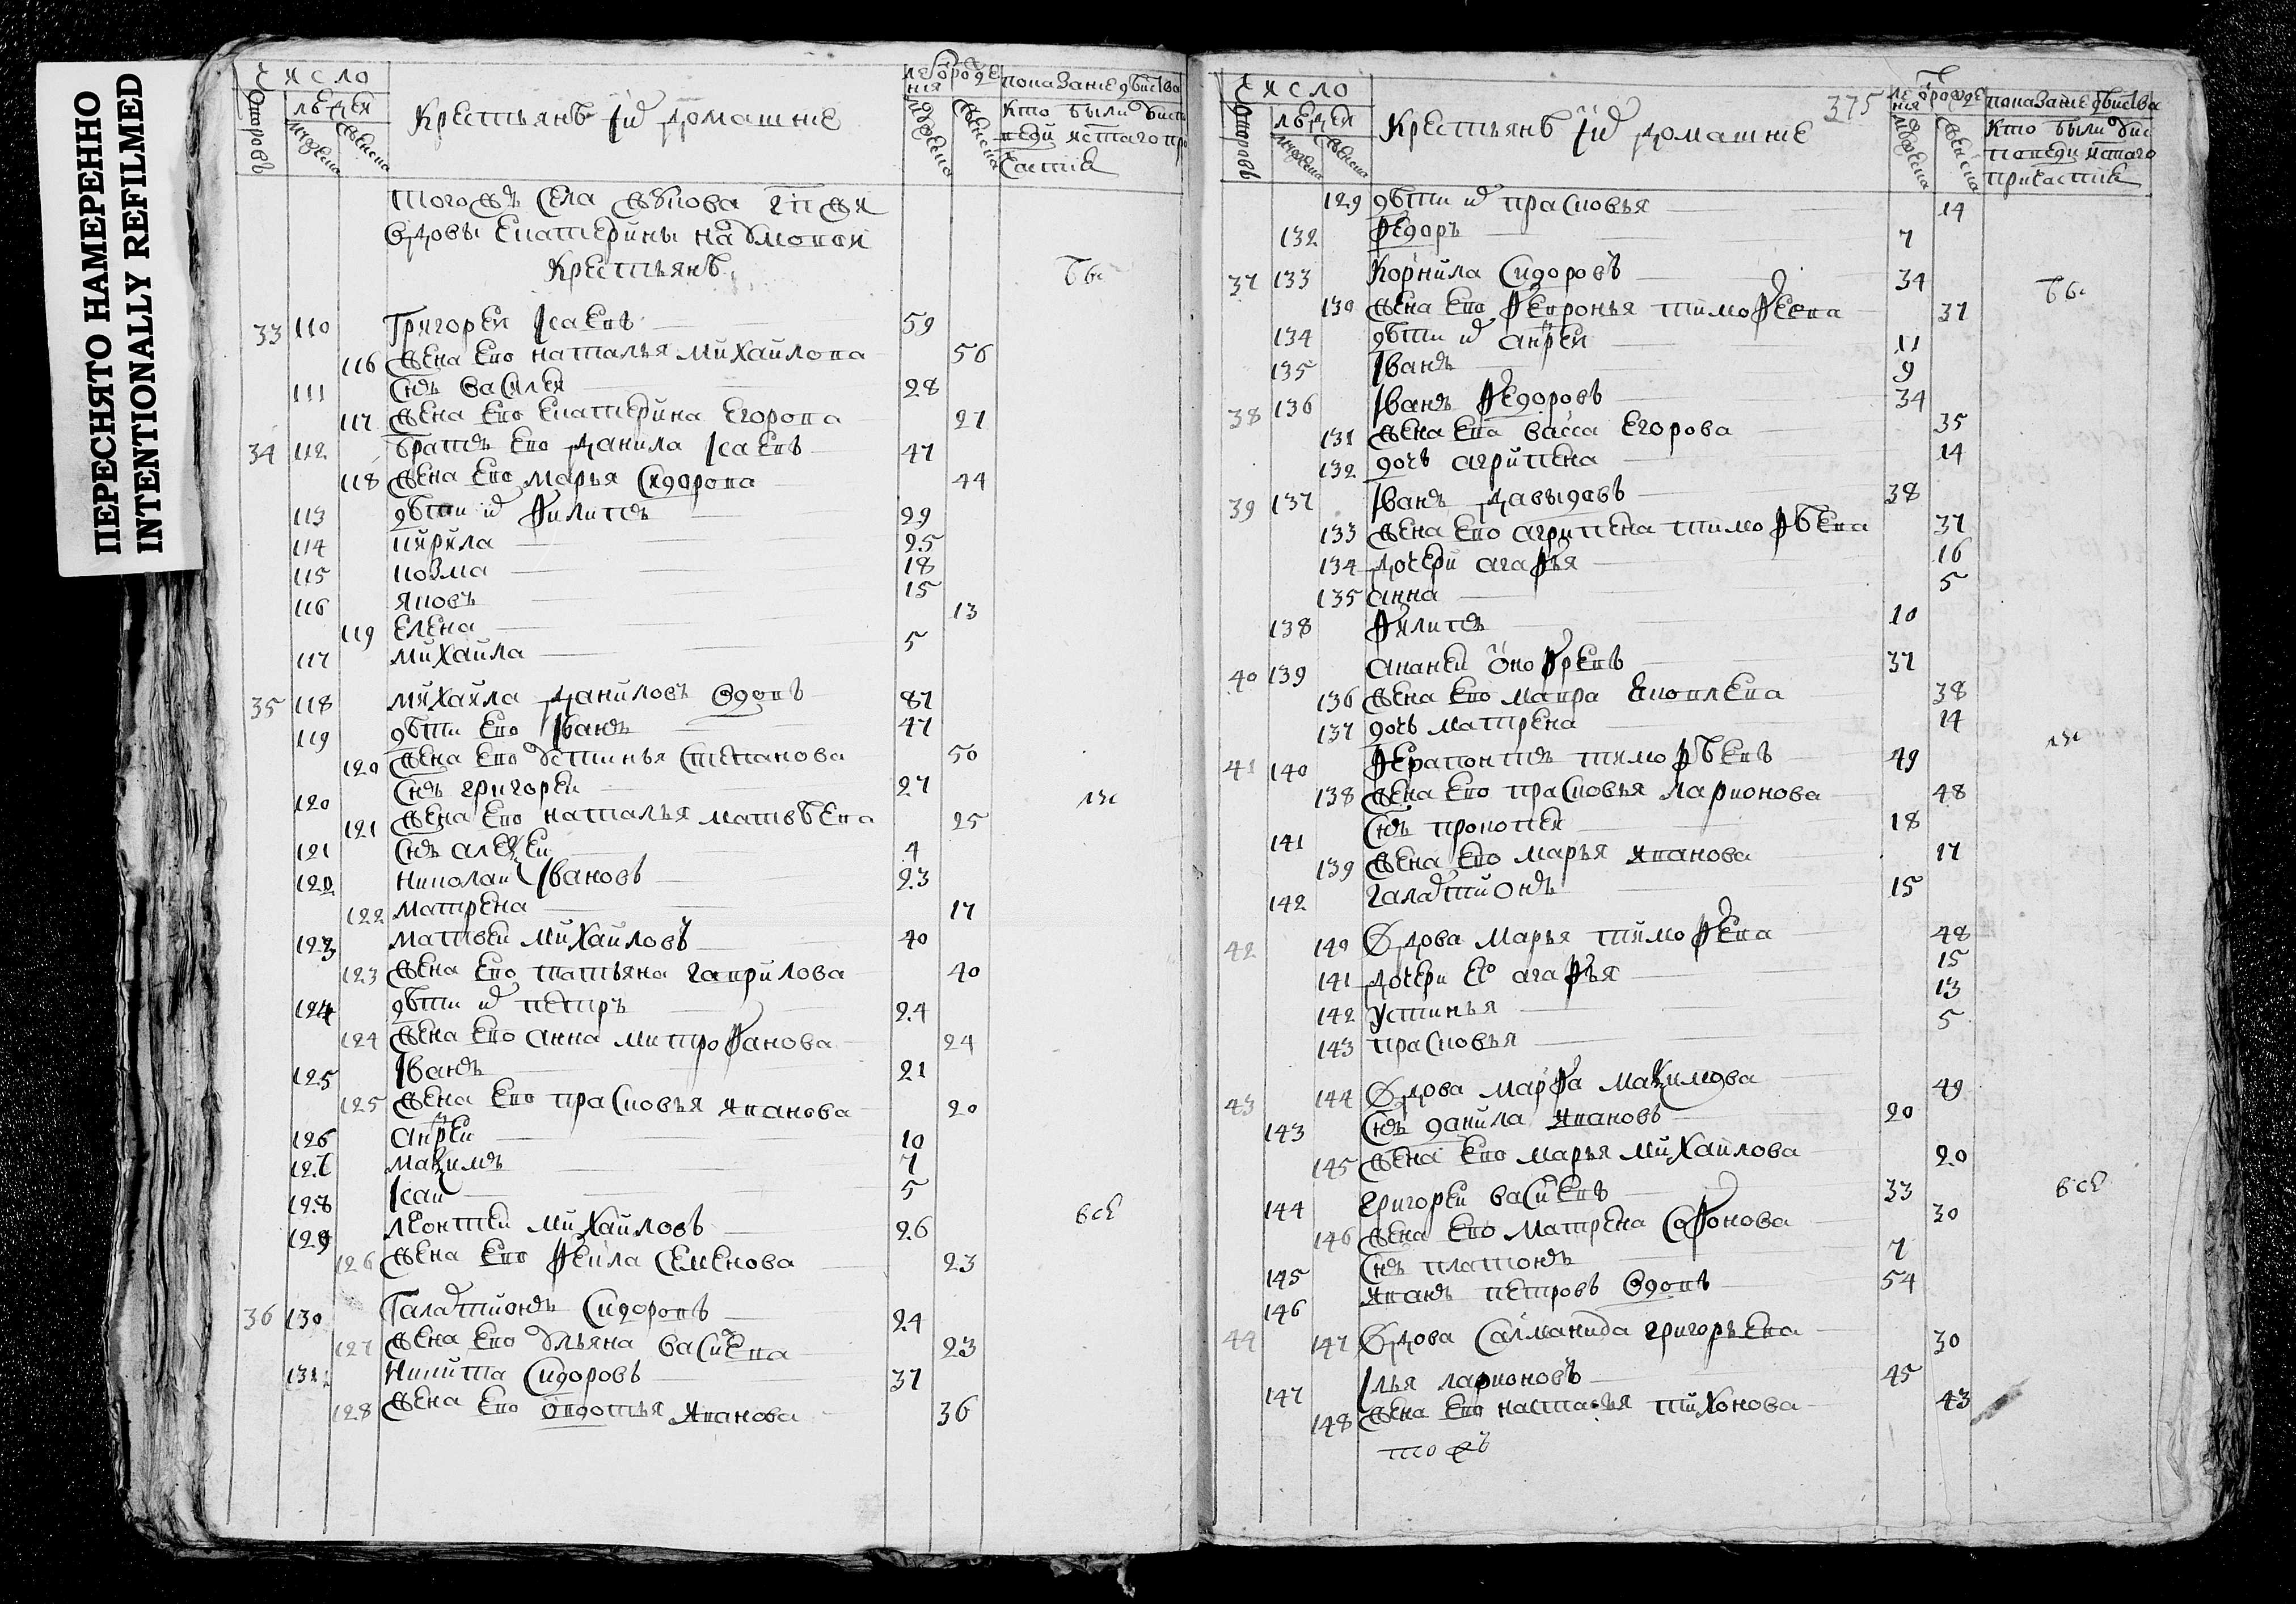 ПЕРЕСНЯТО НАМЕРЕННО
INTENTIONALLY REFILMED
число
дворовъ
людей
мужеска
женска
Крестьянѣ их домашние
лета от рождения
мужеска
женска
показание действа
кто были у исповеди и святаго причастия
тогож села
вдовы Екатерины
Крестьянѣ
33 110 Григорей Исаевъ 59
116 жена ево наталья михайлова 56
111 сынъ василей 28
117 жена ево екатерина егорова 27
34 112 братъ ево данила Исаевъ 47
118 жена ево марья сидорова 44
113 дѣти их филипъ 29
114 кирила 25
115 козма 18
116 яковъ 15
119 елена 13
117 михаила 5
35 118 михаила даниловъ вдовъ 87
119 дѣти ево Иванъ 47
120 жена ево устинья степанова 50
120 сынъ григорей 27
121 жена ево наталья матвѣева 25
121 сынъ алеѯей 4
122 николай Ивановъ 23
122 матрена 17
123 матвей михайловъ 40
123 жена ево татьяна гаврилова 40
124 дѣти их петръ 24
124 жена ево анна митрофанова 24
125 Иванъ 21
125 жена ево прасковья иванова 20
126 андрей 10
127 маѯимъ 7
128 Исай 5
129 леонтей михайловъ 26
все
126 жена ево фекла семенова 23
36 130 Галактионъ Сидоровъ 24
127 жена ево ульяна васильева 23
131 никита Сидоровъ 37
128 жена ево овдотья иванова 36
375
число
дворовъ
людей
мужеска
женска
Крестьянѣ их домашние
лета от рождения
мужеска
женска
показание действа
кто были у исповеди и святаго
причастия
129 дѣти их прасковья 14
132 федоръ 7
37 133 корнила сидоровъ 34
130 жена ево февронья тимофеева 37
134 дѣти их андрей 11
135 Иванъ 9
38 136 Иванъ федоровъ 34
131 жена ева васса егорова 35
132 дочь агрипена 14
39 137 Иванъ давыдовъ 38
133 жена ево агрипена тимофѣева 37
134 дочери агафья 16
135 анна 5
138 филипъ 10
40 139 ананей онофревъ 37
136 жена ево мавра яковлева 38
137 дочь матрена 14
41 140 ферапонтъ тимофѣевъ 49
138 жена ево прасковья ларионова 48
141 сынъ прокопей 18
139 жена ево марья иванова 17
142 галактионъ 15
42 140 вдова марья тимофеева 48
141 дочери ее агафья 15
142 устинья 13
143 прасковья 5
43 144 вдова марфа маѯимова 49
143 сынъ данила ивановъ 20
145 жена ево марья михайлова 20
144 григорей васильевъ 33
все
146 жена ево матрена софонова 30
145 сынъ платонъ 7
146 иванъ петровъ вдовъ 54
44 147 вдова саломанида григорьева 30
147 Илья ларионовъ 45
148 жена ево настасья тихонова 43
тогожъ